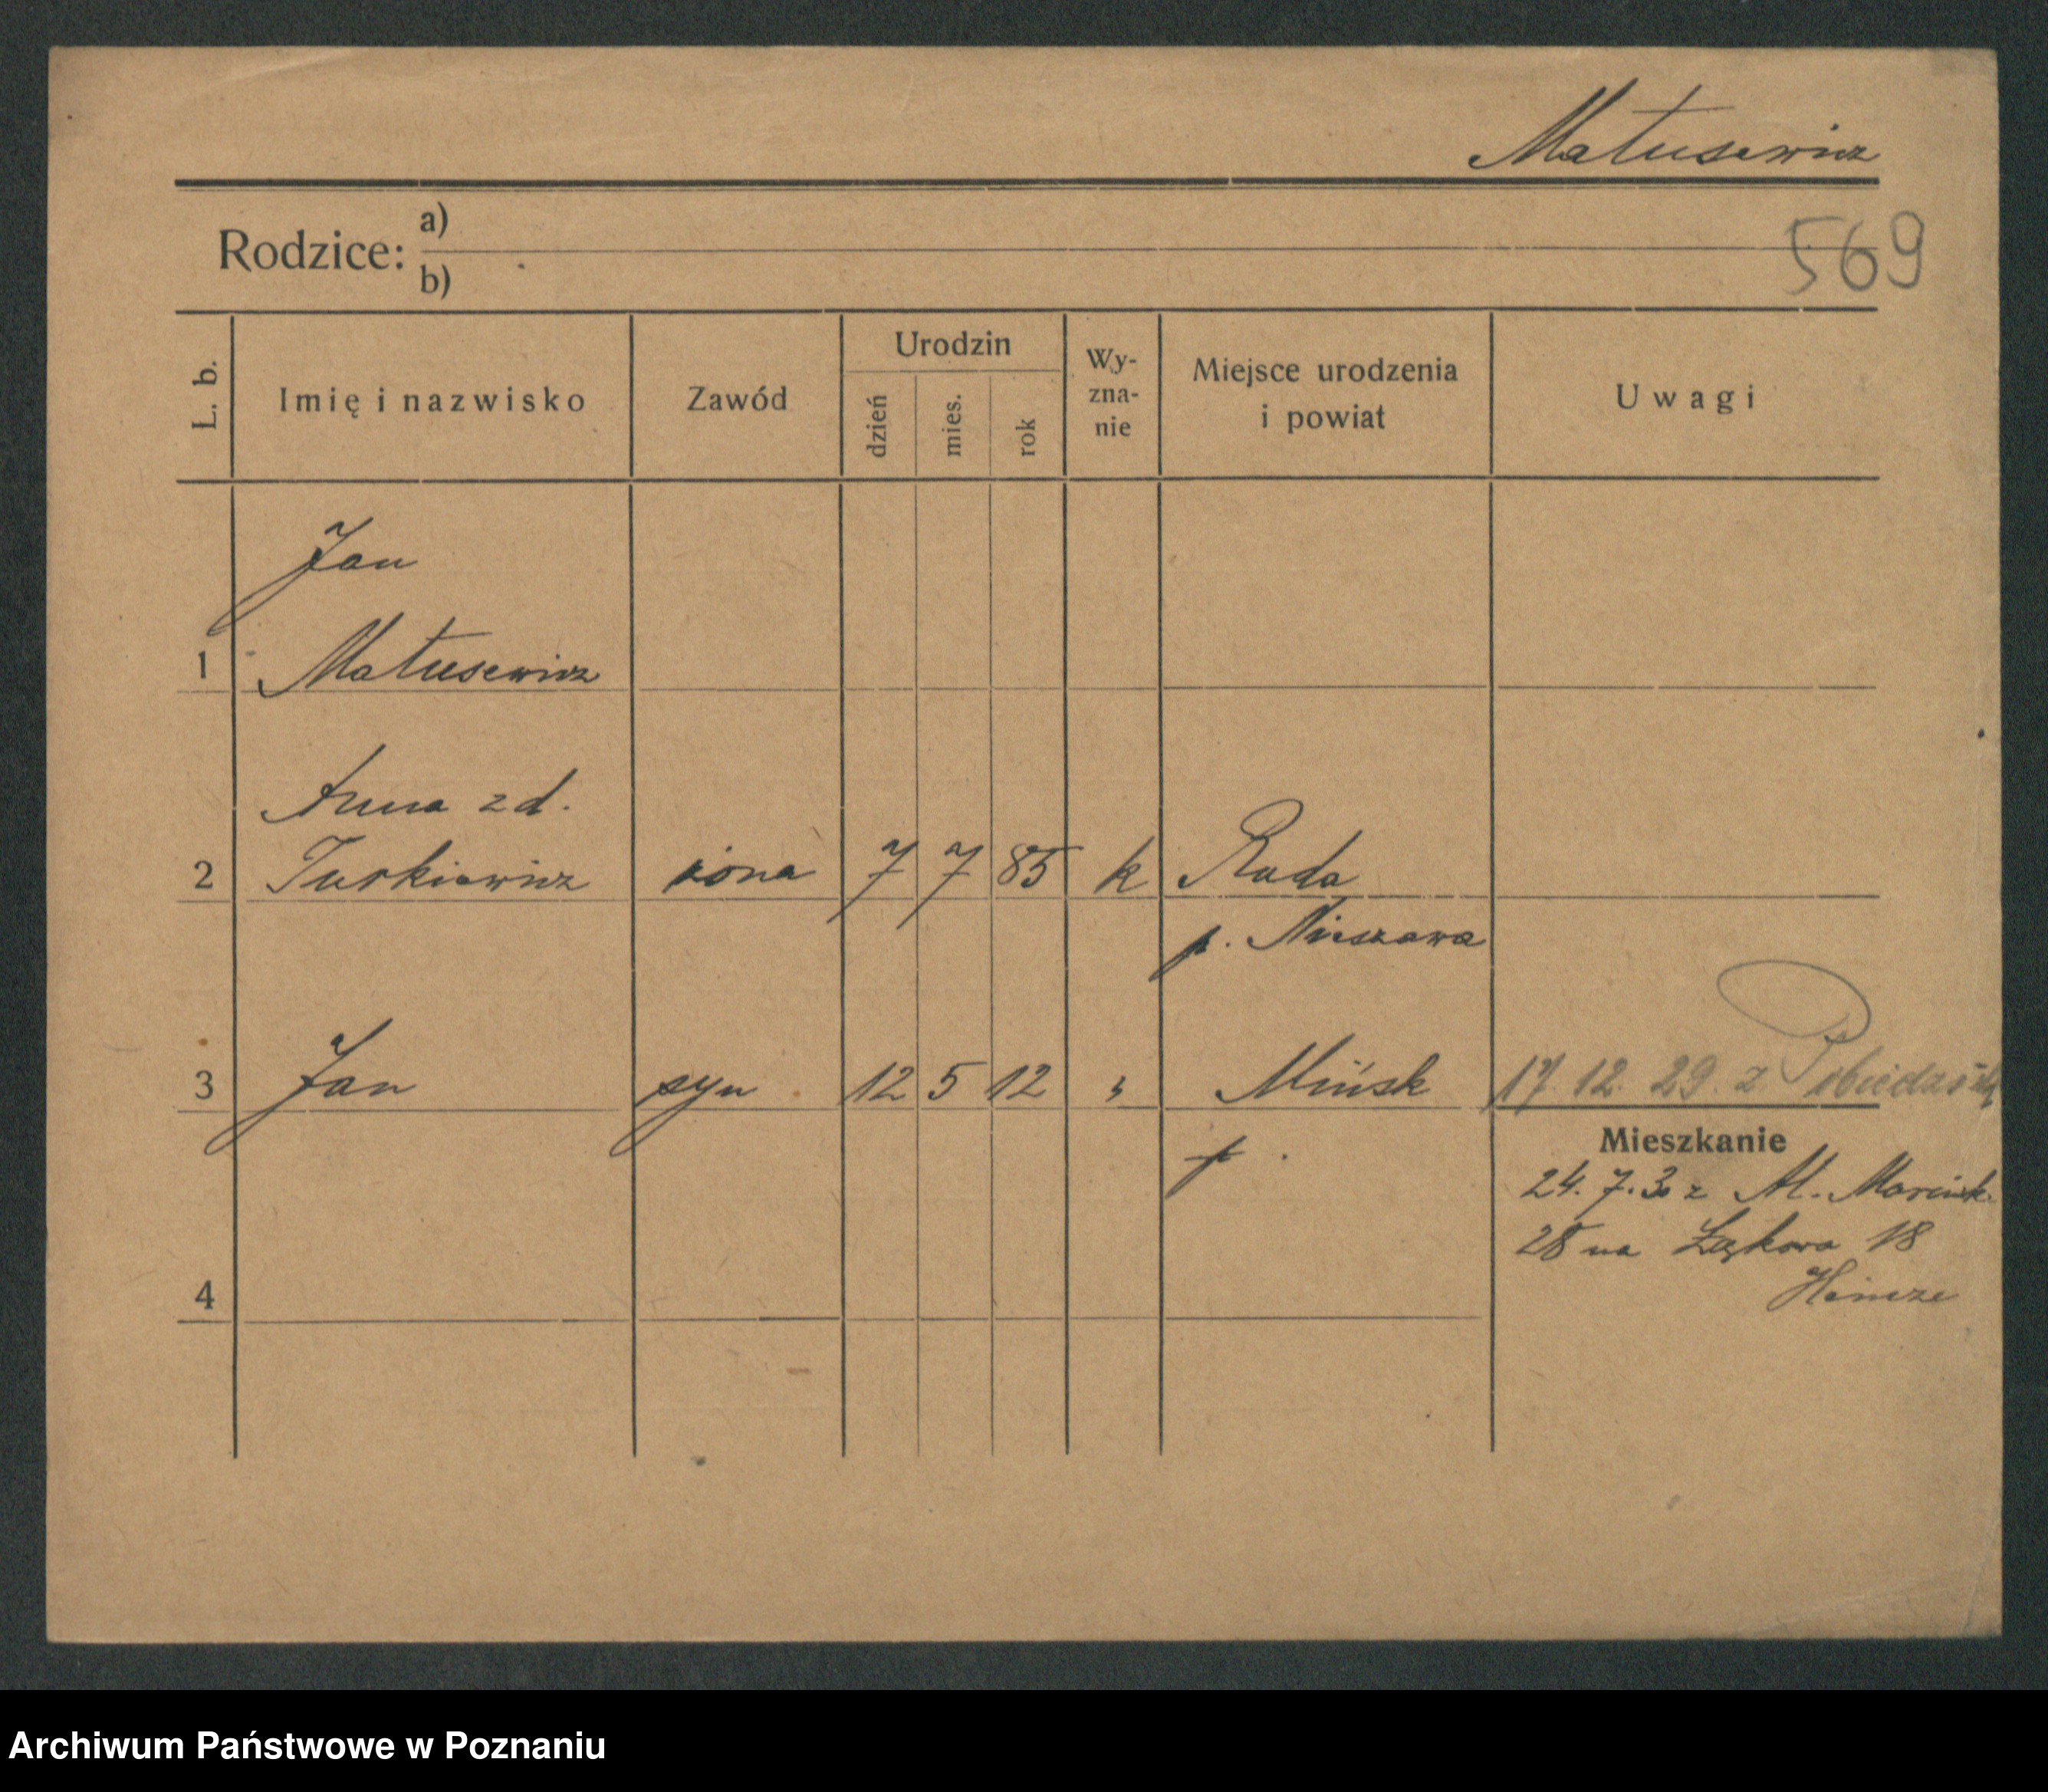 Matusewicz
Rodzice: a)
b)
569
L. b.
Imię i nazwisko
Zawód
Urodzin
dzień
mies.
rok
Wy-
zna-
nie
Miejsce urodzenia
i powiat
Uwagi
Jan
1 Matusewicz
Anna zd.
2 Turkiewicz żona 7 7 85 k Ruda
p. Nieszawa
3 Jan syn 12 5 12 " Mińsk 17. 12. 29. z
p .
Mieszkanie
24. 7. 30 z Al. Marcink.
28 na Łąkowa 18
Heinze
4
Archiwum Państwowe w Poznaniu